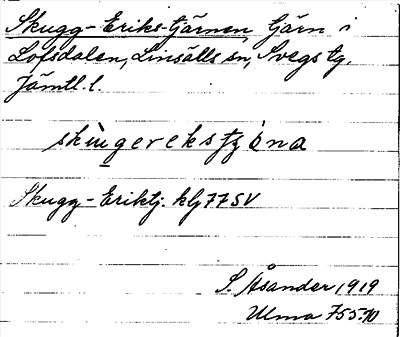 Skugg-Eriks-tjärnen, tjärn i
Lofsdalen, Linsälls sn, Svegs tg,
Jämtl. l.
skùgerekstʒɵ́na
Skugg-Eriktj. klj 77 SV
S. Åsander 1919
Ulma 755:10